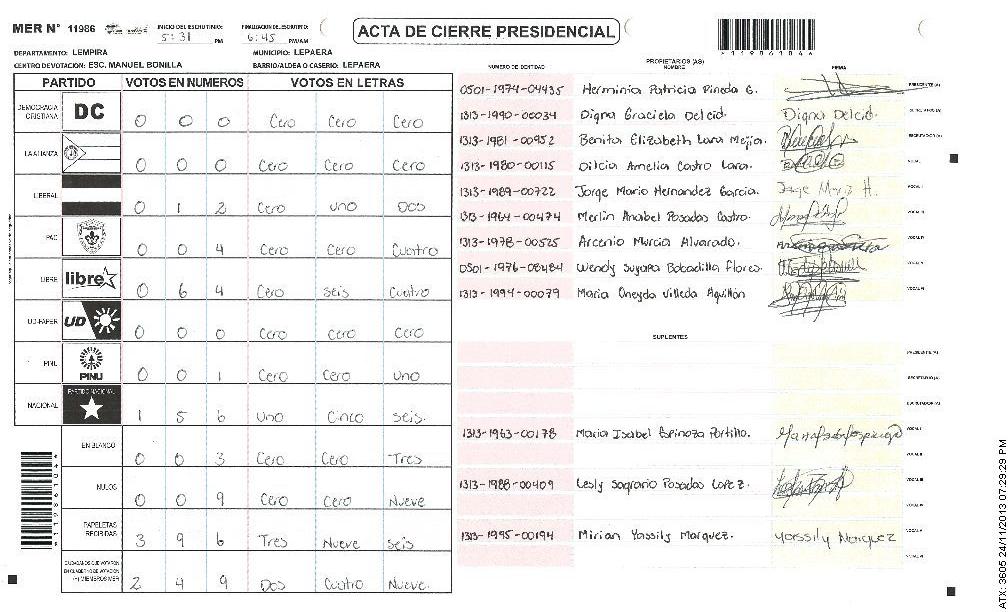 MER Nº 11986
INICIO DEL ESCRUTINIO: 5:31 PM
FINALIZACION DEL ESCRUTINIO: 6:45 PM/AM
ACTA DE CIERRE PRESIDENCIAL
DEPARTAMENTO: LEMPIRA
MUNICIPIO: LEPAERA
CENTRO DE VOTACION: ESC. MANUEL BONILLA
BARRIO/ALDEA O CASERIO: LEPAERA
PARTIDO VOTOS EN NUMEROS VOTOS EN LETRAS
DEMOCRACIA CRISTIANA DC 0 0 0 Cero Cero Cero
LA ALIANZA 0 0 0 Cero Cero Cero
LIBERAL 0 1 2 Cero uno Dos
PAC 0 0 4 Cero Cero Cuatro
LIBRE libre 0 6 4 Cero seis Cuatro
UD-FAPER UD 0 0 0 Cero Cero Cero
PINU PINU 0 0 1 Cero Cero Uno
NACIONAL PARTIDO NACIONAL 1 5 6 Uno Cinco seis.
EN BLANCO 0 0 3 Cero Cero Tres
NULOS 0 0 9 Cero Cero Nueve
PAPELETAS RECIBIDAS 3 9 6 Tres Nueve seis
CIUDADANOS QUE VOTARON EN CUADERNO DE VOTACION (+) MIEMBROS MER 2 4 9 Dos Cuatro Nueve.
NUMERO DE IDENTIDAD PROPIETARIOS (AS) NOMBRE FIRMA
0501-1974-04435 Herminia Patricia Pineda G. PRESIDENTE (A)
1313-1990-00034 Digna Graciela Delcid. Digna Delcid. SECRETARIO (A)
1313-1981-00952 Benita Elizabeth Lara Mejia. ESCRUTADOR (A)
1313-1980-00115 Dilcia Amelia Castro Lara. VOCAL I
1313-1989-00722 Jorge Mario Hernandez Garcia. VOCAL II
1313-1964-00474 Merlin Anabel Posadas Castro. VOCAL III
1313-1978-00525 Arcenio Murcia Alvarado. VOCAL IV
0501-1976-08484 Wendy Suyapa Bobadilla Flores. VOCAL V
1313-1994-00079 Maria Oneyda Villeda Aguillon VOCAL VI
SUPLENTES
PRESIDENTE (A)
SECRETARIO (A)
ESCRUTADOR (A)
1313-1963-00178 Maria Isabel Espinoza Portillo. VOCAL I
VOCAL II
1313-1988-00409 Lesly Sagrario Posadas Lopez. VOCAL III
VOCAL IV
1313-1995-00194 Mirian Yassily Marquez. Yassily Marquez VOCAL V
VOCAL VI
ATX: 3605 24/11/2013 07:29:29 PM